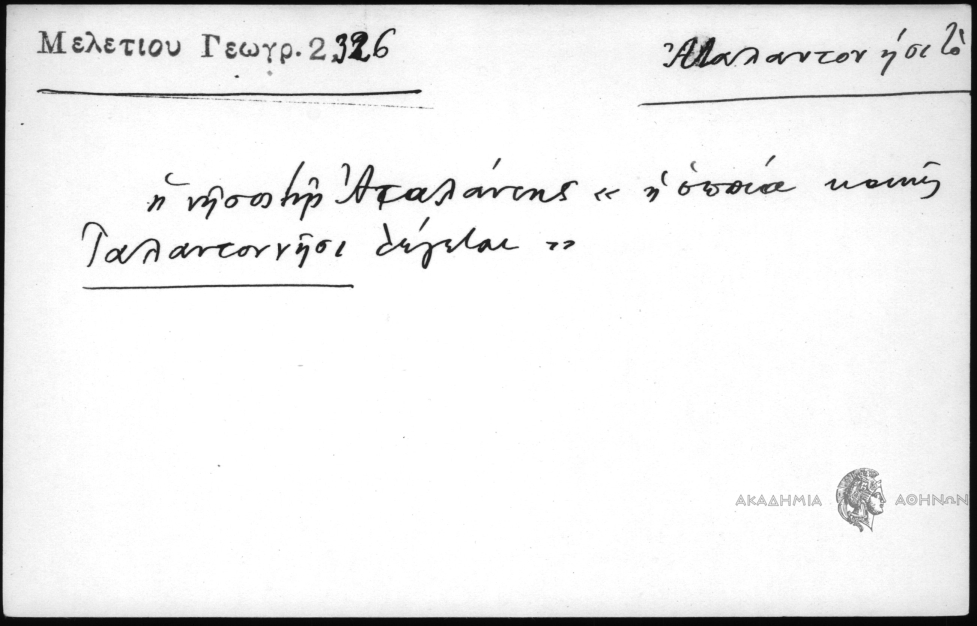 Μελετίου Γεωγρ. 2, 326
Ἀταλαντονήσι τὸ
ἡ νῆσος τῆς Ἀταλάντης « ἡ ὁποία κοινῶς
Ταλαντοννῆσι λέγεται »
ΑΚΑΔΗΜΙΑ ΑΘΗΝΩΝ